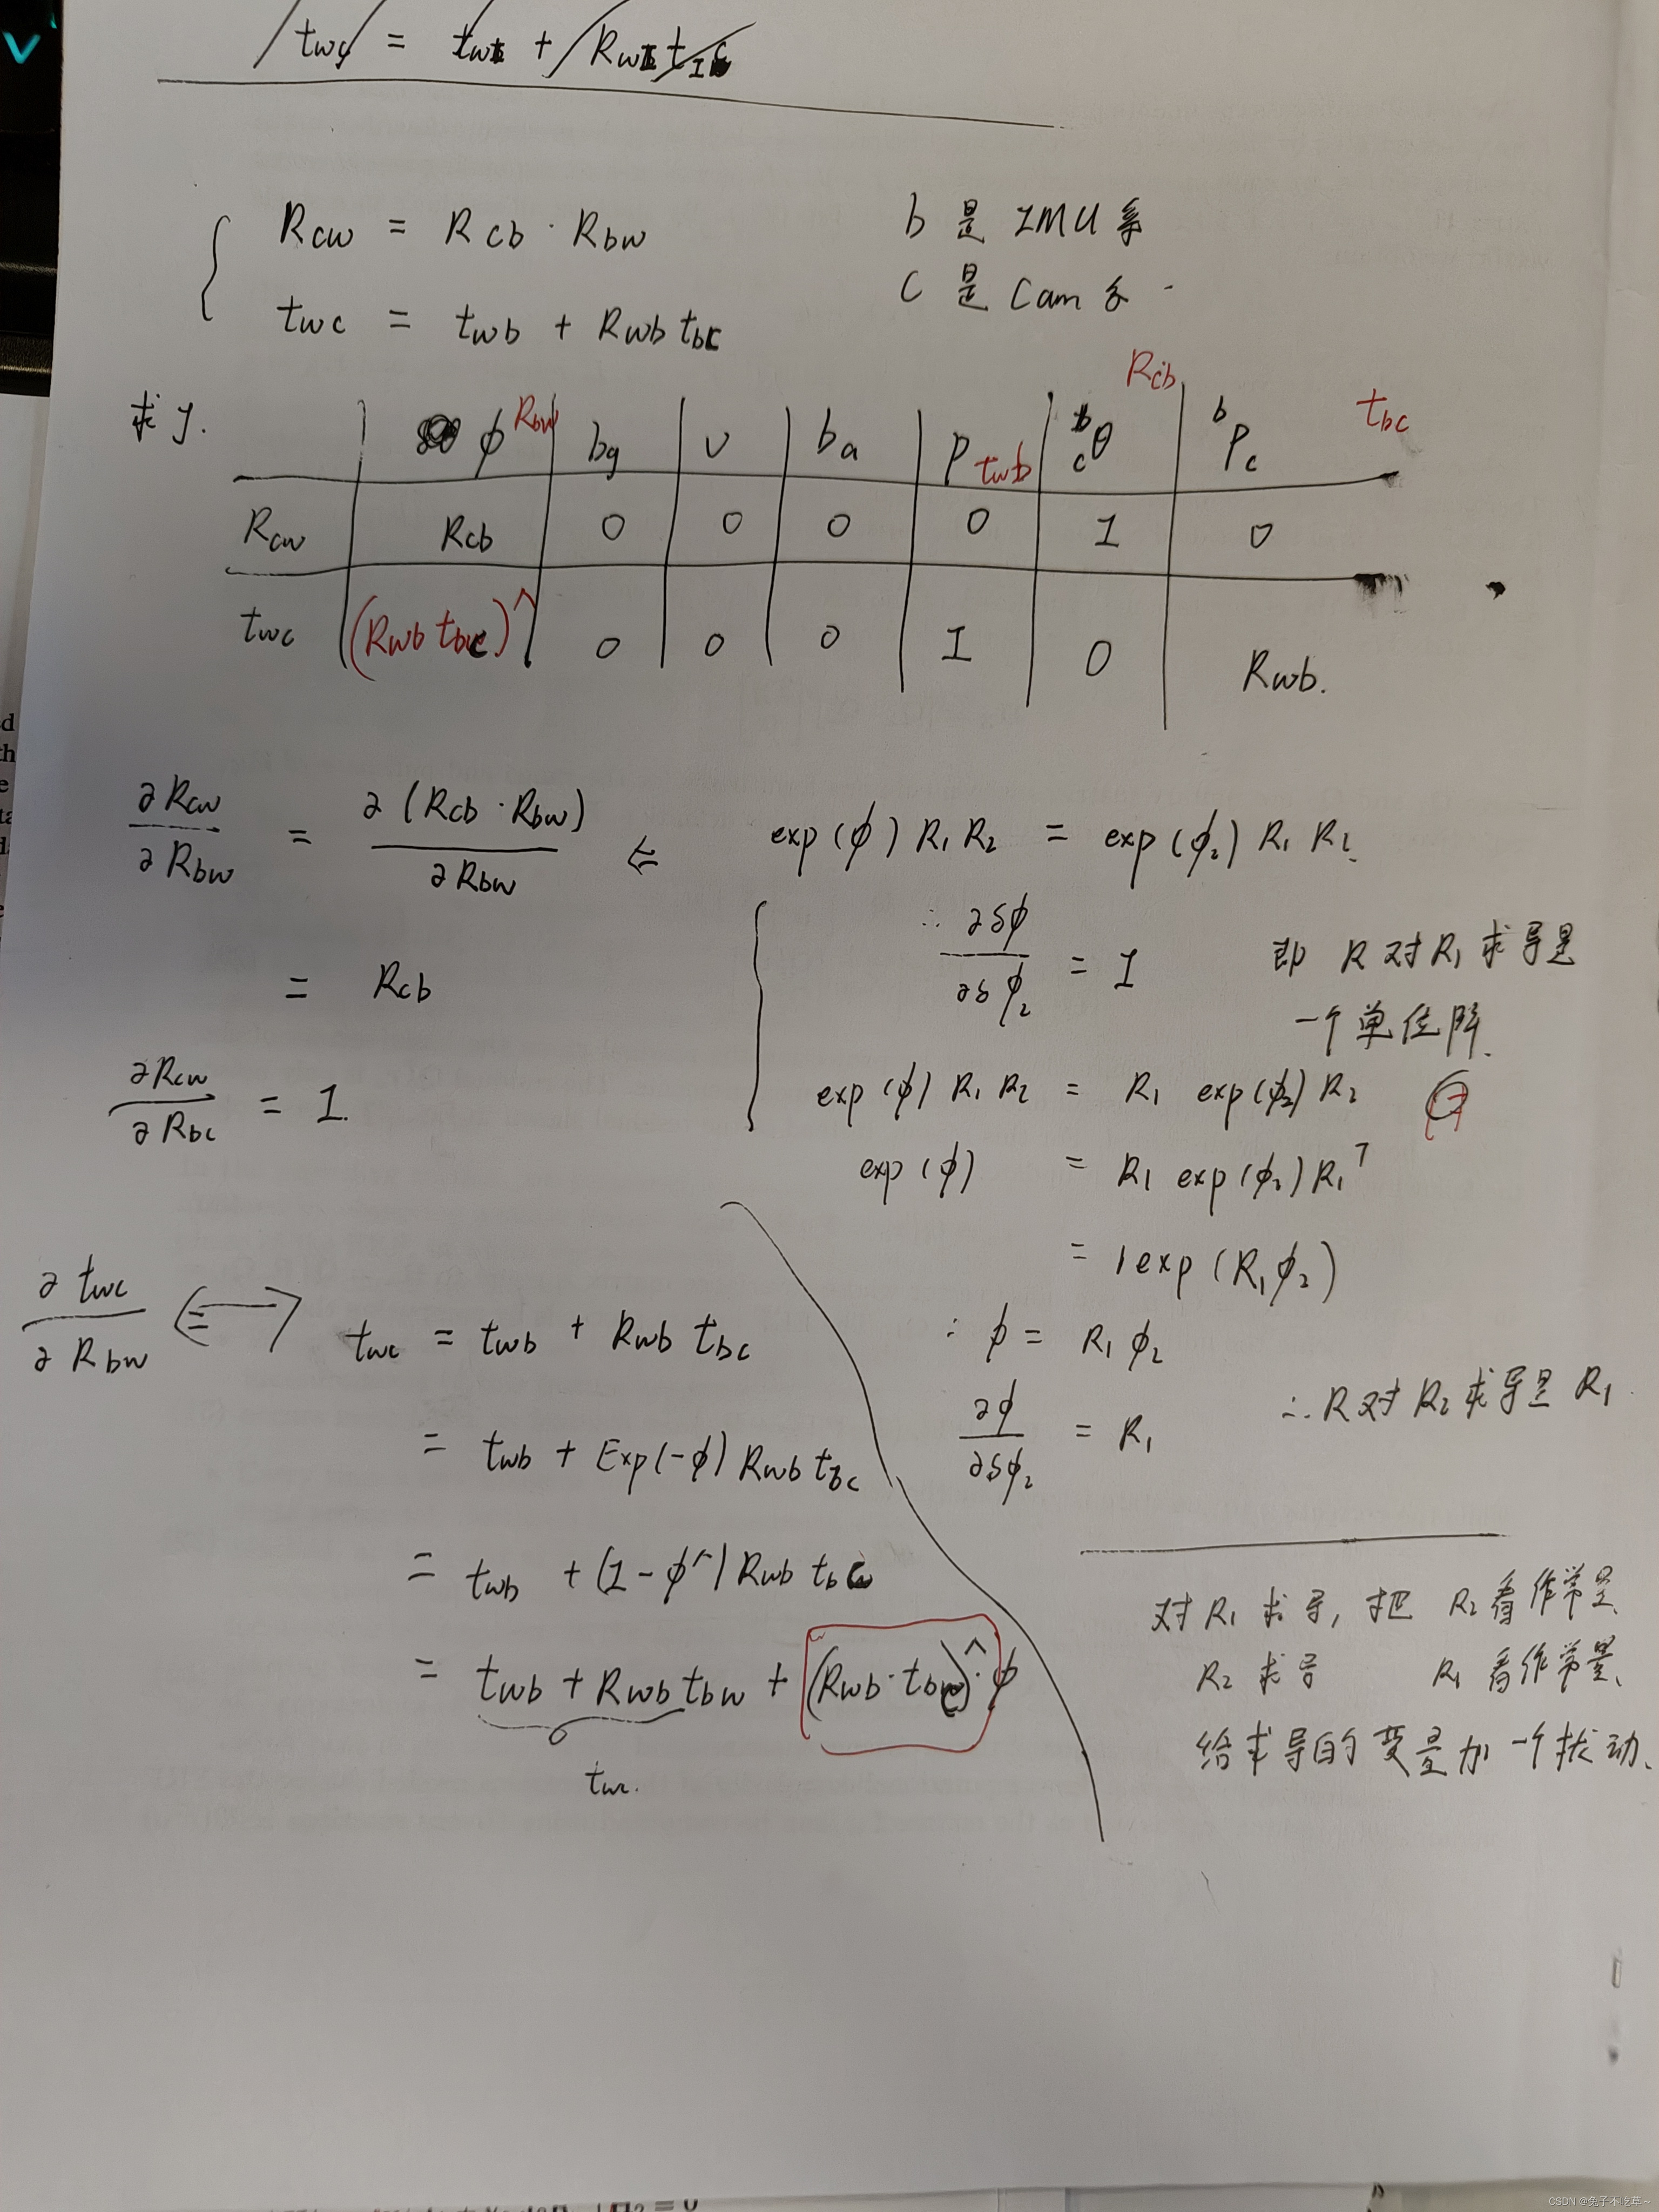 twc = twI + RwI tIc
Rcw = Rcb · Rbw
b 是 IMU 系
twc = twb + Rwb tbc
c 是 Cam 系.
求 J.
ϕ Rbw bg v ba p twb bcθ Rcb bPc tbc
Rcw Rcb 0 0 0 0 I 0
twc (Rwb tbc)^ 0 0 0 I 0 Rwb.
∂Rcw / ∂Rbw = ∂(Rcb · Rbw) / ∂Rbw ⇐ exp(ϕ) R1 R2 = exp(ϕ2) R1 R2.
∴ ∂δϕ / ∂δϕ2 = I 即 R 对 R1 求导是
= Rcb
一个单位阵.
∂Rcw / ∂Rbc = I.
exp(ϕ) R1 R2 = R1 exp(ϕ2) R2
exp(ϕ) = R1 exp(ϕ2) R1^T
= exp(R1ϕ2)
∴ ϕ = R1 ϕ2
∂ϕ / ∂δϕ2 = R1 ∴ R对 R2 求导是 R1.
∂twc / ∂Rbw
twc = twb + Rwb tbc
= twb + Exp(-ϕ) Rwb tbc
= twb + (I - ϕ^) Rwb tbc
= twb + Rwb tbw + (Rwb · tbc)^ · ϕ
twc.
对 R1 求导, 把 R2 看作常量
R2 求导 R1 看作常量.
给求导的变量加一个扰动.
CSDN @兔子不吃草~